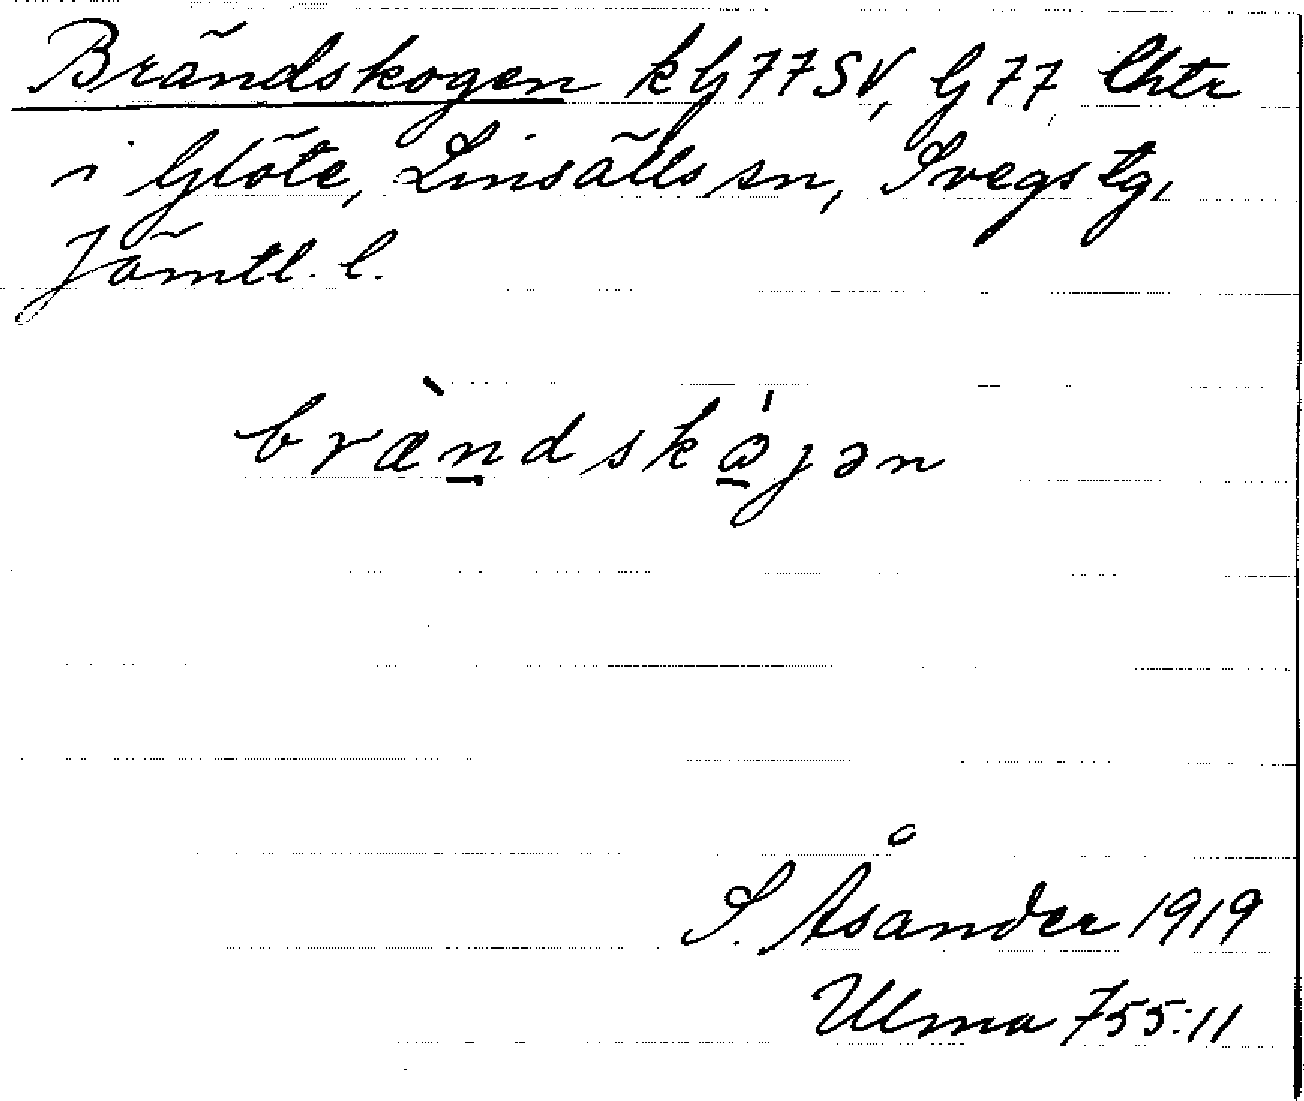 Brändskogen kG77SV, G77 Chtr
i Glöte, Linsälls sn, Svegs tg,
Jämtl. l.
bræ̀ndskója̱n
S. Åsander 1919
Ulma 755:11